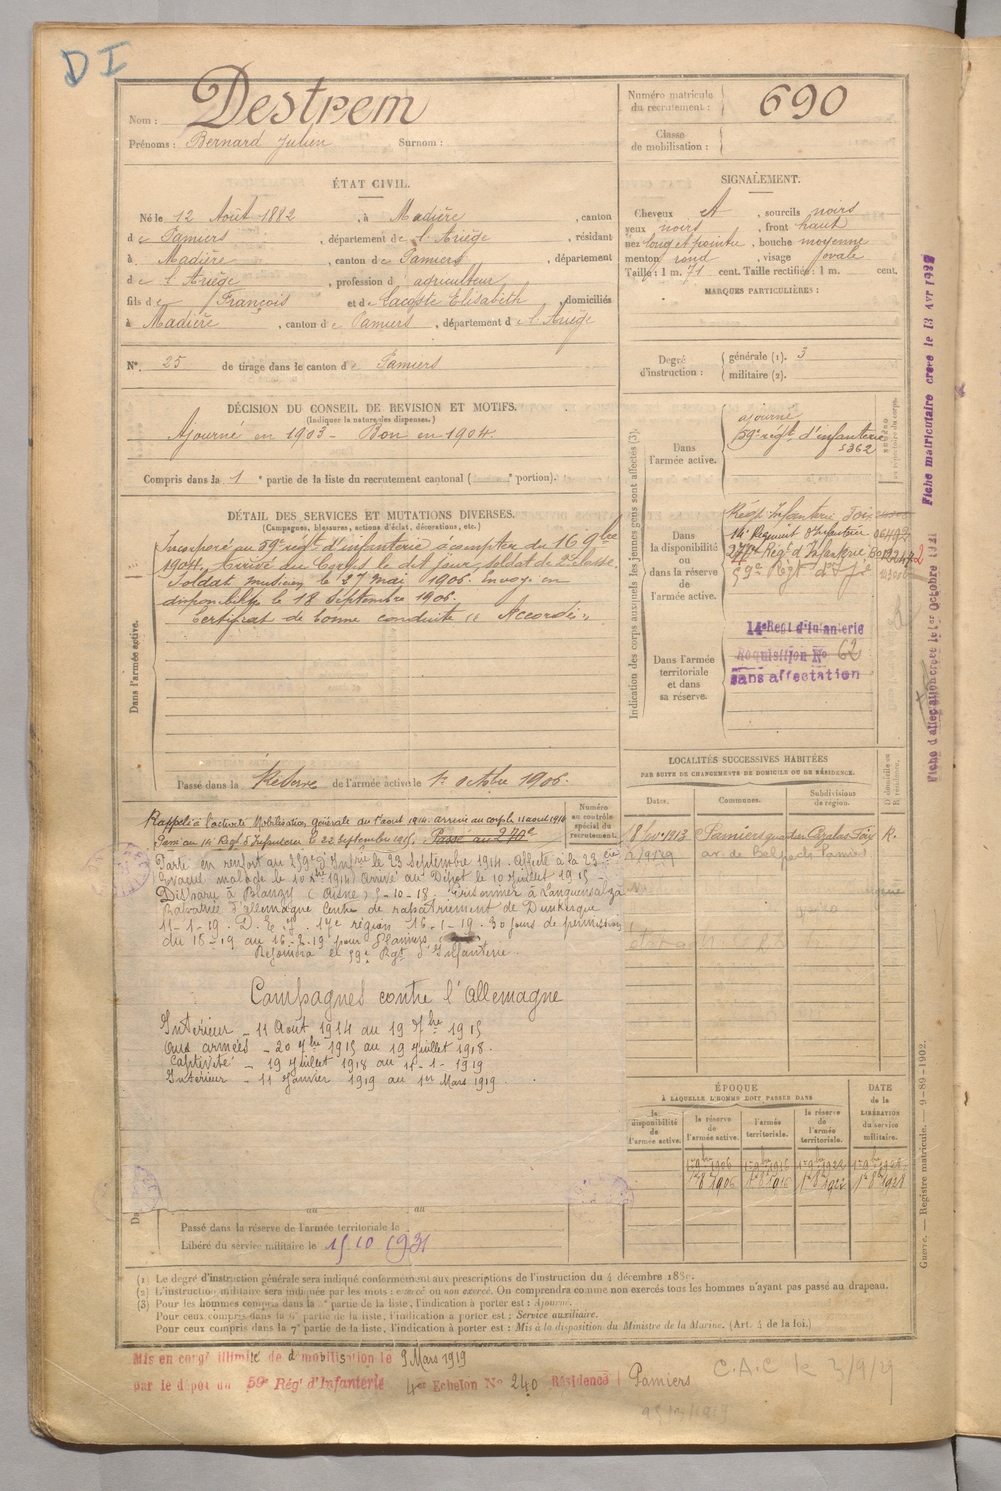 D I
Nom : Destrem
Prénoms : Bernard Julien Surnom :
Numéro matricule du recrutement : 690
Classe de mobilisation :
ÉTAT CIVIL.
Né le 12 Août 1882, à Madière, canton
de Pamiers, département de l'Ariège, résidant
à Madière, canton de Pamiers, département
de l'Ariège, profession d'agriculteur
fils de François et de Lacoste Elisabeth, domiciliés
à Madière, canton de Pamiers, département de l'Ariège
N°. 25 de tirage dans le canton de Pamiers
SIGNALEMENT.
Cheveux et, sourcils noirs
yeux noirs, front haut
nez long et pointu, bouche moyenne
menton rond, visage ovale
Taille : 1 m. 71 cent. Taille rectifiée : 1 m. cent.
MARQUES PARTICULIÈRES :
Degré d'instruction : générale (1). 3
militaire (2).
DÉCISION DU CONSEIL DE REVISION ET MOTIFS.
(Indiquer la nature des dispenses.)
Ajourné en 1903 - Bon en 1904.
Compris dans la 1e partie de la liste du recrutement cantonal ( portion).
DÉTAIL DES SERVICES ET MUTATIONS DIVERSES.
(Campagnes, blessures, actions d'éclat, décorations, etc.)
Dans l'armée active.
Incorporé au 59e régt d'infanterie à compter du 16 9bre
1904, Arrivé au Corps le dit jour, soldat de 2e classe.
Soldat musicien le 27 mai 1906. Envoyé en
disponibilité le 18 Septembre 1906.
Certificat de bonne conduite « Accordé »
Passé dans la Réserve de l'armée active le 1er octobre 1906.
Indication des corps auxquels les jeunes gens sont affectés (3).
Dans l'armée active.
ajourné
59e régt d'infanterie
5362
Dans la disponibilité ou dans la réserve de l'armée active.
Régt Infanterie Foix
14e Régiment d'Infanterie
Régt d'Infanterie
59e Régt d'Ie
Dans l'armée territoriale et dans sa réserve.
14e Regt d'Infanterie
Réquisition No 62
sans affectation
Fiche matriculaire créée le 13 Avr 1932
LOCALITÉS SUCCESSIVES HABITÉES
PAR SUITE DE CHANGEMENTS DE DOMICILE OU DE RÉSIDENCE.
Dates. Communes. Subdivisions de région. D. domicile ou R. résidence.
1913 Pamiers Foix R.
Pamiers
Numéro au contrôle spécial du recrutement.
Rappelé à l'activité Mobilisation générale du 1er aout 1914. arrivé au corps le 11 aout 1914
Passé au 14e Régt d'Infanterie le 22 septembre 1915. Passé au
Parti en renfort au 259e d'Infrie le 23 Septembre 1914. Affecté à la 23e Cie
Evacué malade le 1914 Arrivé au Dépôt le 10 Juillet 1915 -
Disparu à Blanzy (Aisne) Prisonnier à Langensalza
Rapatrié d'allemagne Centre de rapatriement de Dunkerque
11-1-19. 17e région 16-1-19. 30 jours de permission
pour Pamiers
Rejoindra le 59e Régt d'Infanterie.
Campagnes contre l'Allemagne
Intérieur - 11 Août 1914 au 19 7bre 1915
Aux armées - 20 7bre 1915 au 19 Juillet 1918.
Captivité - 19 Juillet 1918 au 11-1-1919
Intérieur - 11 Janvier 1919 au 1er Mars 1919
ÉPOQUE
À LAQUELLE L'HOMME DOIT PASSER DANS
la disponibilité de l'armée active. la réserve de l'armée active. l'armée territoriale. la réserve de l'armée territoriale. DATE de la LIBÉRATION du service militaire.
1er 8bre 1906 1er 8bre 1916 1er 8bre 1922 1er 8bre 1928
Passé dans la réserve de l'armée territoriale le
Libéré du service militaire le 15 10 1931
Guerre. — Registre matricule. — 9-89-1902.
(1) Le degré d'instruction générale sera indiqué conformément aux prescriptions de l'instruction du 4 décembre
(2) L'instruction militaire sera indiquée par les mots : exercé ou non exercé. On comprendra comme non exercés tous les hommes n'ayant pas passé au drapeau.
(3) Pour les hommes compris dans la partie de la liste, l'indication à porter est : Ajourné.
Pour ceux compris dans la 6e partie de la liste, l'indication à porter est : Service auxiliaire.
Pour ceux compris dans la 7e partie de la liste, l'indication à porter est : Mis à la disposition du Ministre de la Marine. (Art. 4 de la loi.)
Mis en congé illimité de démobilisation le 9 Mars 1919
par le dépôt du 59e Rég' d'Infanterie 4e Echelon No 240 Résidence Pamiers
C.A.C le 3/9/29